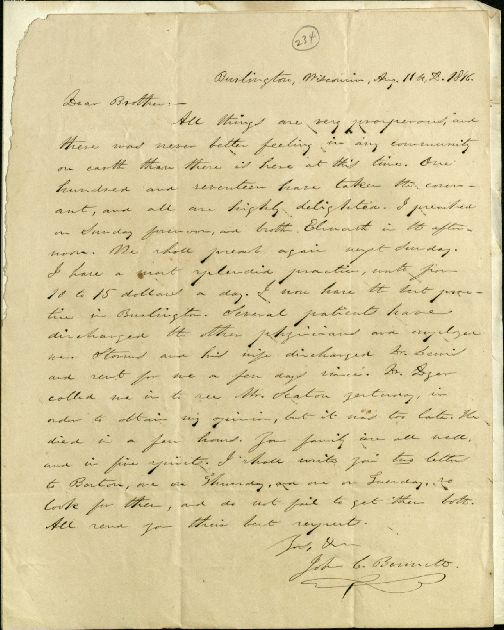 234
Burlington, Wisconsin, Aug. 11th, 1846.
Dear Brother:—
All things are very prosperous, and
there was never better feeling in any community
on earth than there is here at this time. One
hundred and seventeen have taken the coven-
ant, and all are highly delighted. I preached
on Sunday forenoon, and broth. Elsworth in the after-
noon. We shall preach again next Sunday.
I have a most splendid practice, worth from
10 to 15 dollars a day. I now have the best prac-
tice in Burlington. Several patients have
discharged the other physicians and employed
me. Storms and his wife discharged Dr. Lewis
and sent for me a few days since. Dr. Dyer
called me in to see Mr. Seaton yesterday, in
order to obtain my opinion, but it was too late. He
died in a few hours. Your family are all well,
and in fine spirits. I shall write you two letters
to Boston, one on Thursday, and one on Tuesday, so
look for them, and do not fail to get them both.
All send you their best respects.
Yours, &c
John C. Bennett.